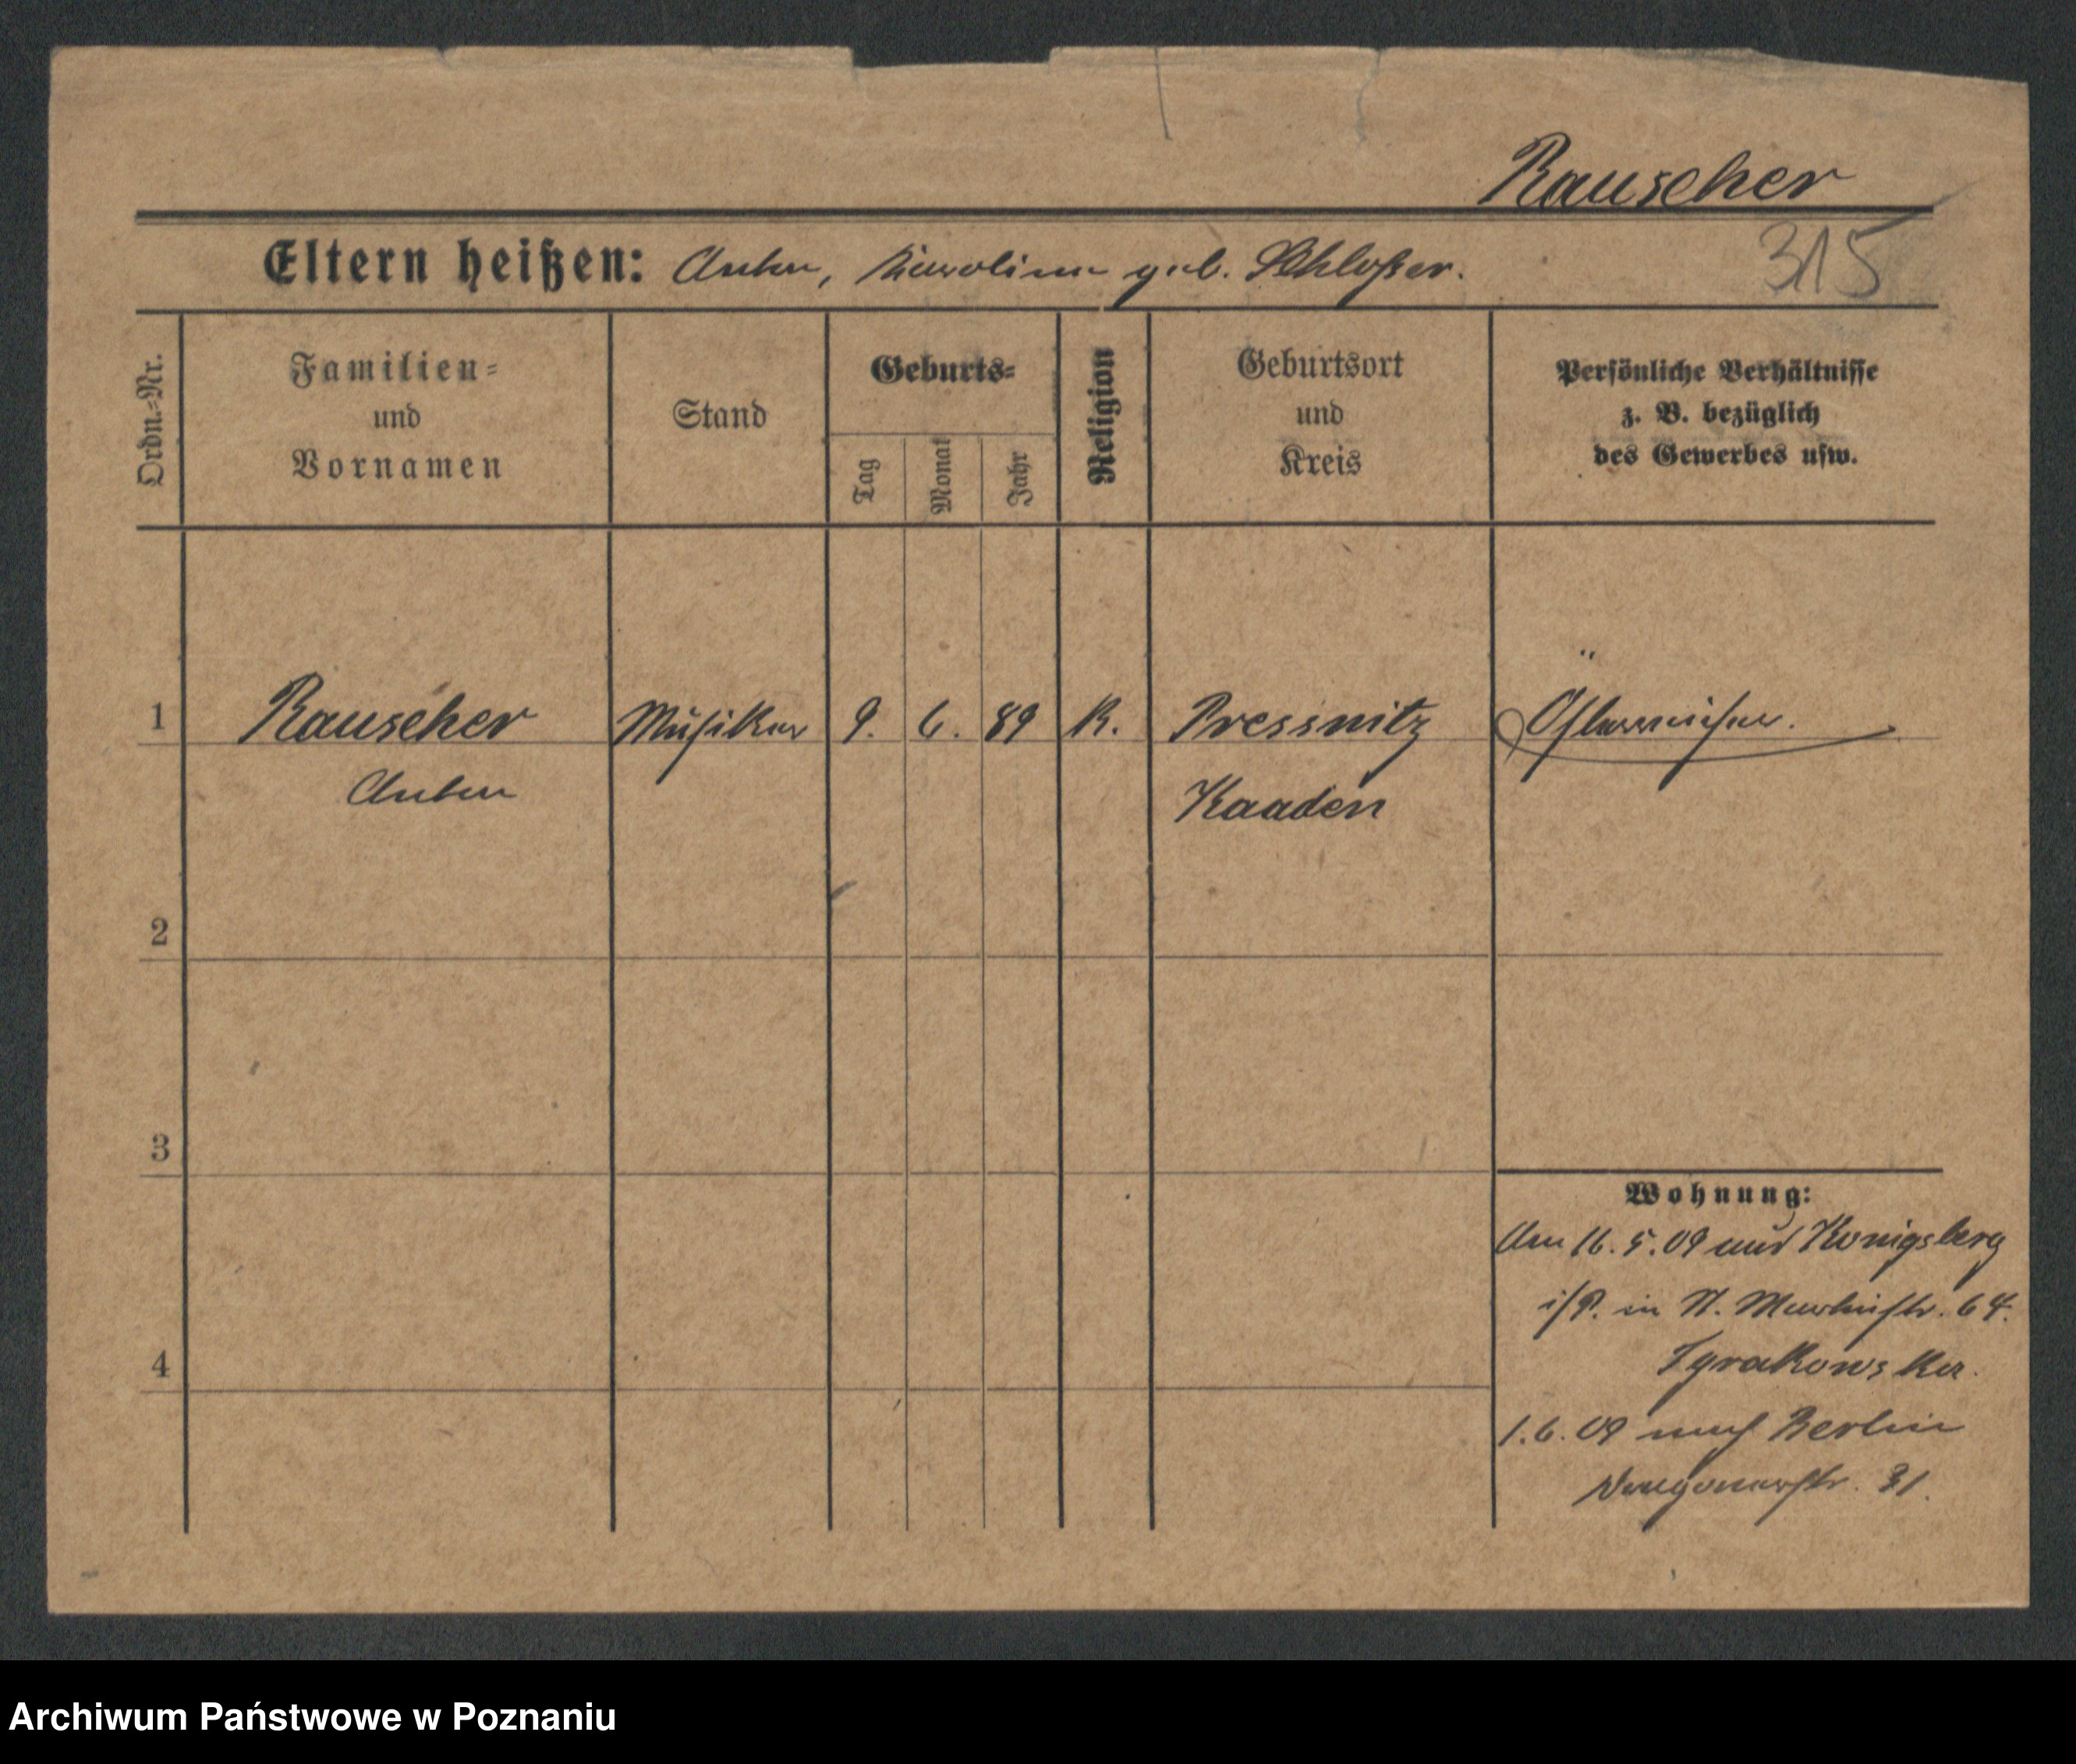 Rauscher
315
Eltern heißen: Anton, Karolina geb. Schloßer.
Ordn.-Nr.
Familien-
und
Vornamen
Stand
Geburts-
Tag
Monat
Jahr
Religion
Geburtsort
und
Kreis
Persönliche Verhältnisse
z. B. bezüglich
des Gewerbes usw.
1 Rauscher Musiker 9. 6. 89 K. Pressnitz Östereicher.
Anton Kaaden
2
3
4
Wohnung:
Am 16. 5. 09 aus Konigsberg
i/P. in St. Martinstr. 64.
1. 6. 09 nach Berlin
Dragonerstr. 31.
Archiwum Państwowe w Poznaniu